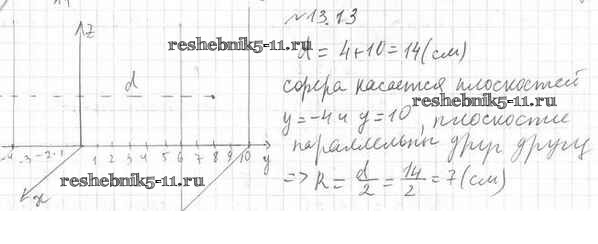 №13.13
z
d = 4+10=14(см)
reshebnik5-11.ru
d
сфера касается плоскостей
reshebnik5-11.ru
y=-4 и y=10, плоскости
параллельны друг другу
-4 -3 -2 -1 1 2 3 4 5 6 7 8 9 10 y
=> R = d/2 = 14/2 = 7(см)
reshebnik5-11.ru
x